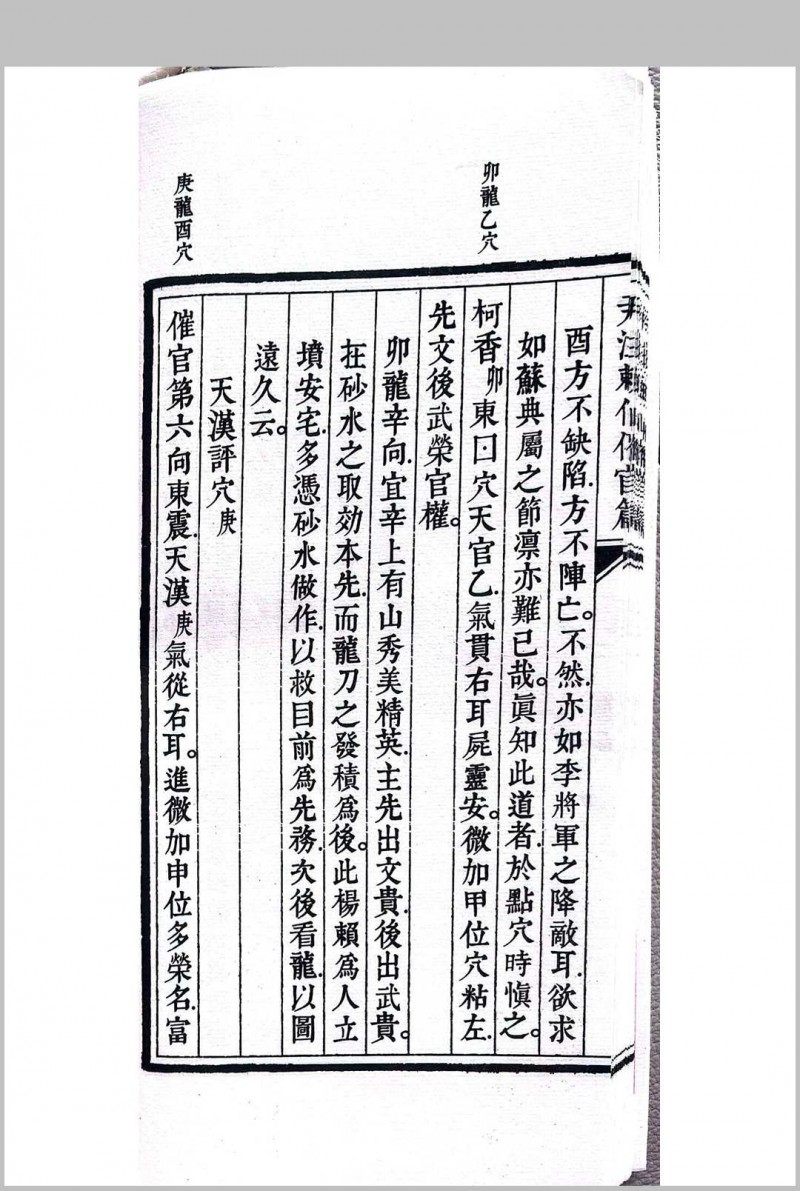 卯龍乙穴
庚龍酉穴
酉方不缺陷.方不陣亡。不然.亦如李將軍之降敵耳.欲求
如蘇典屬之節凛亦難已哉。眞知此道者.於點穴時愼之。
柯香卯東曰穴天官乙.氣貫右耳屍靈安。微加甲位穴粘左.
先文後武榮官權。
卯龍辛向.宜辛上有山秀美精英.主先出文貴.後出武貴。
在砂水之取効本先.而龍刀之發積爲後。此楊賴爲人立
墳安宅.多憑砂水做作.以救目前爲先務.次後看龍.以圖
遠久云。
天漢評穴庚
催官第六向東震.天漢庚氣從右耳。進微加申位多榮名.富